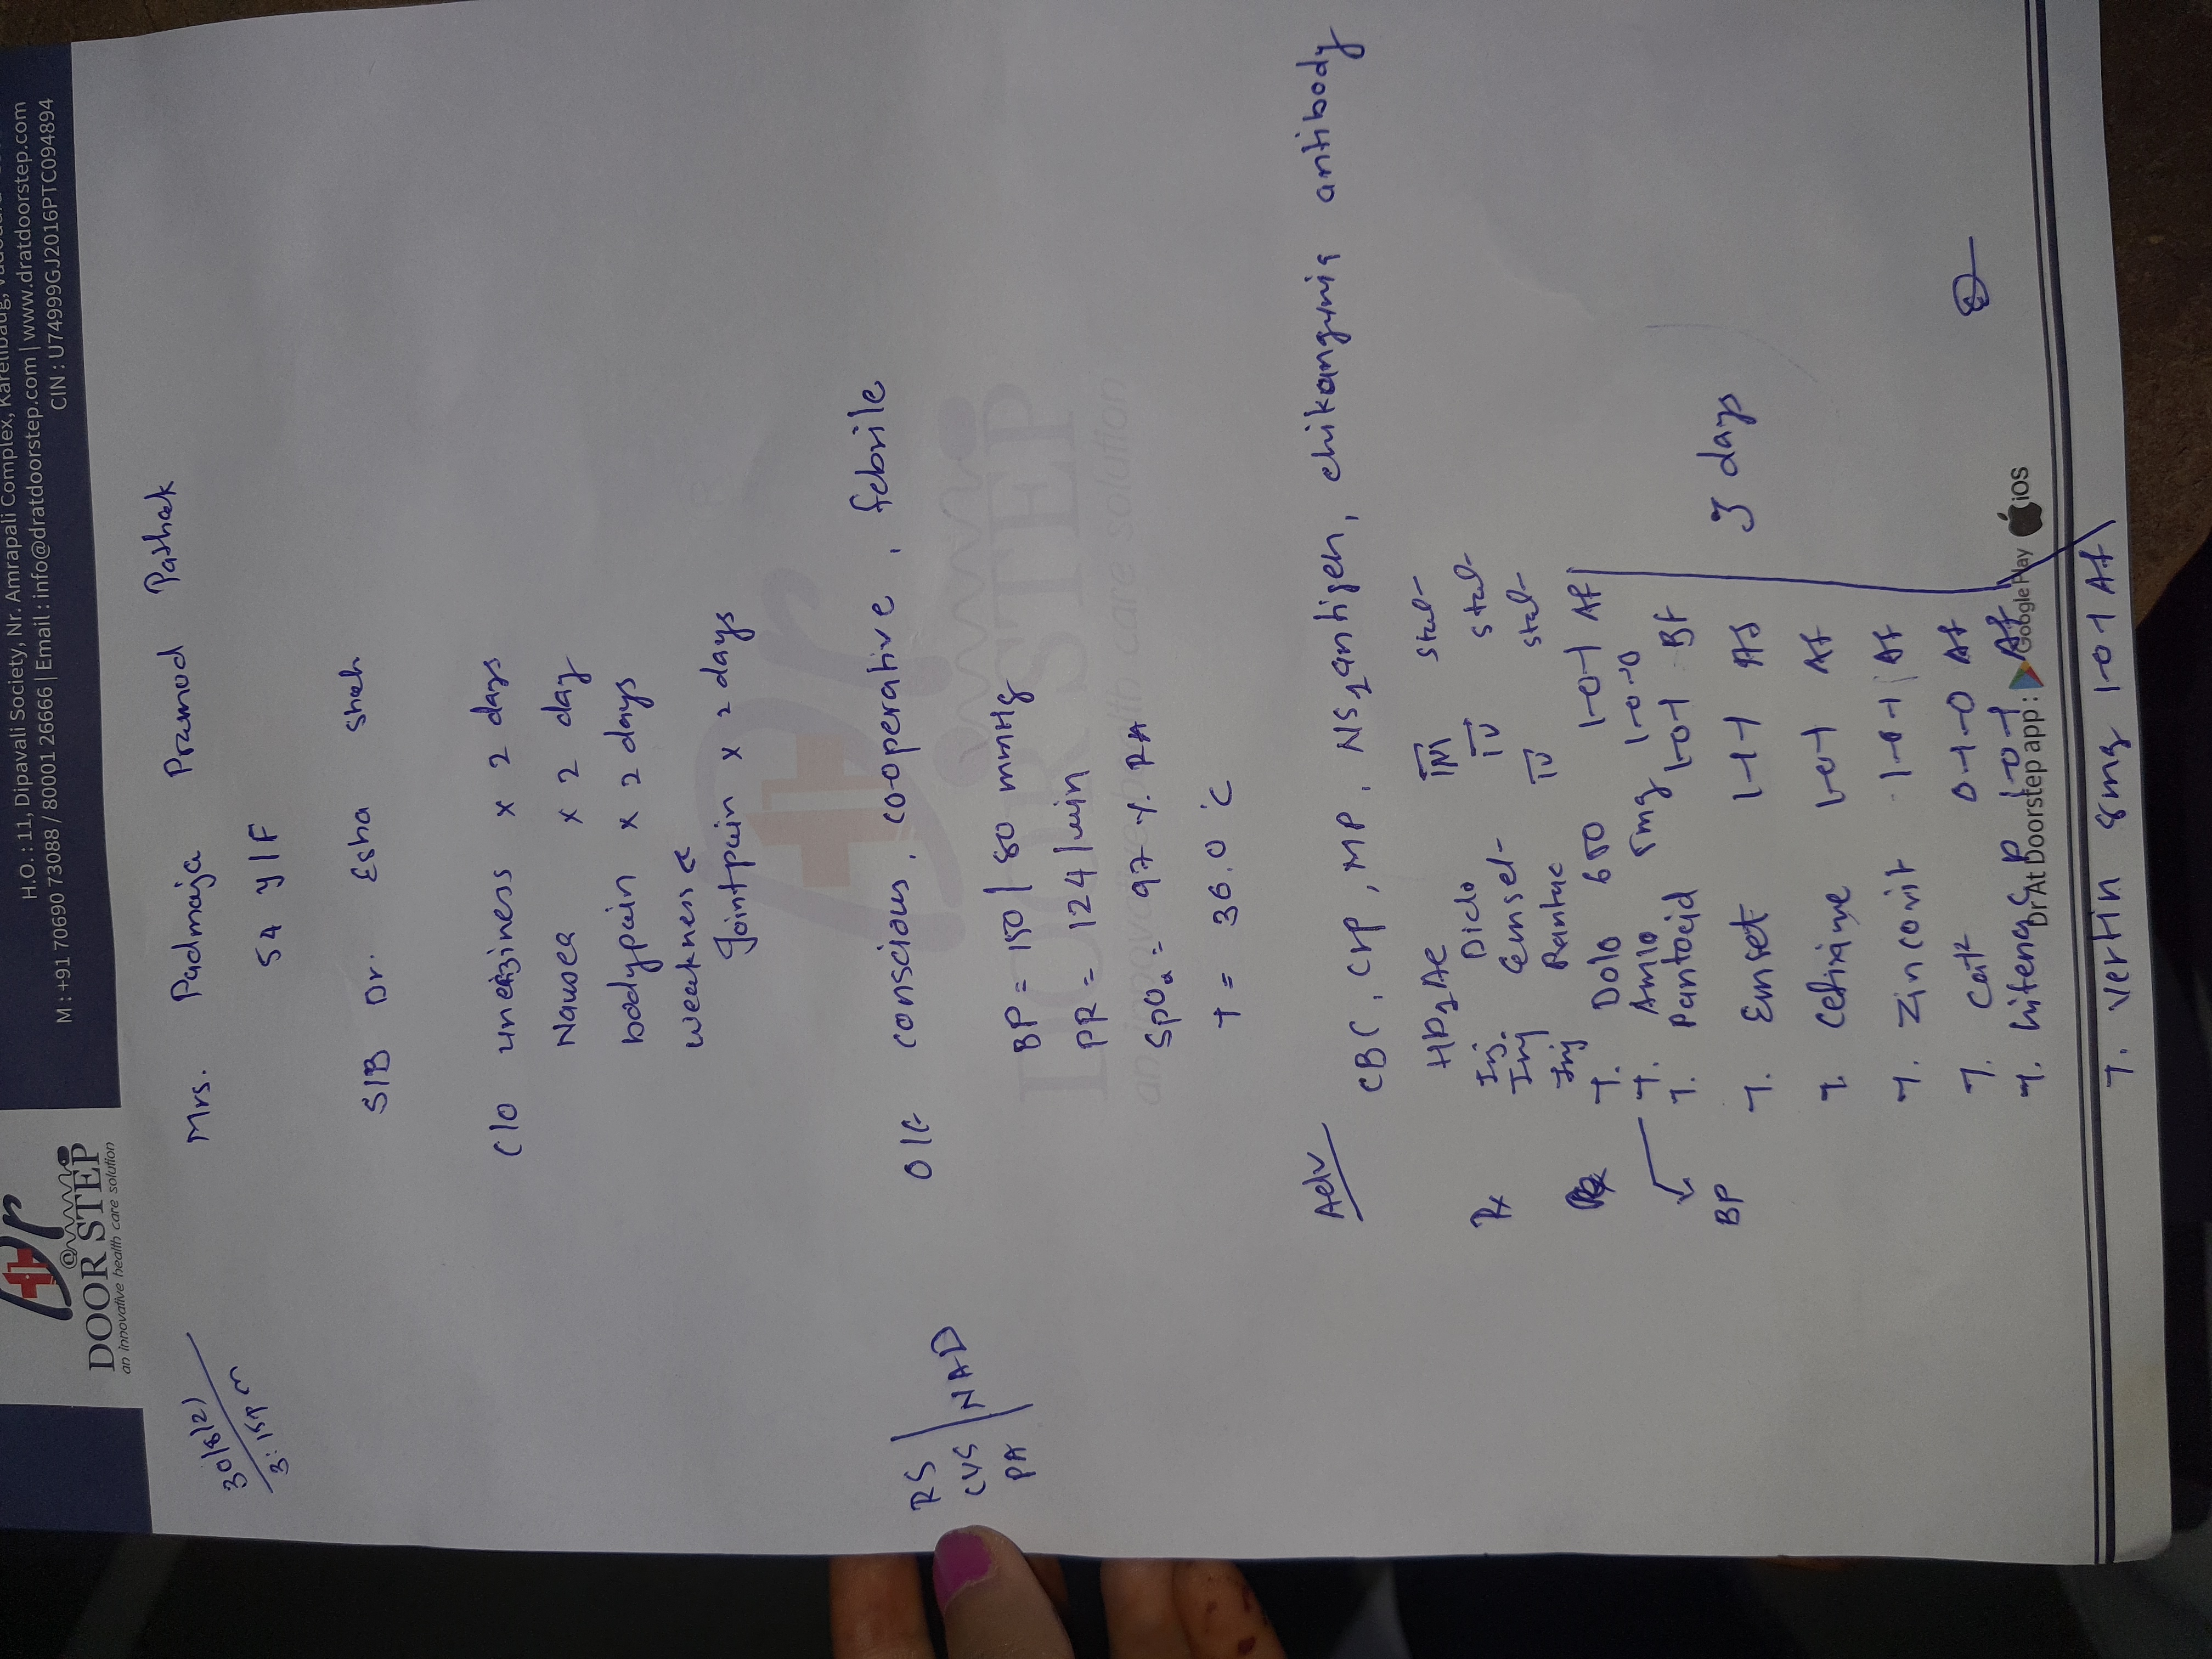 Dr
@
DOOR STEP
an innovative health care solution
H.O. : 11, Dipavali Society, Nr. Amrapali Complex, Karelibaug,
M : +91 70690 73088 / 80001 26666 | Email : info@dratdoorstep.com | www.dratdoorstep.com
CIN : U74999GJ2016PTC094894
30/8/21
3:15pm
Mrs. Padmaja Pramod Pathak
54 y/F
S/B Dr. Esha Shah
C/O uneiziness x 2 days
Nausea x 2 day
bodypain x 2 days
weakness
Jointpain x 2 days
O/E conscious, co-operative, febrile
RS
CVS NAD
PA
BP = 150/80 mmHg
PR = 124/min
SpO2 = 97 % RA
T = 36.0 °C
Adv
CBC, Crp, MP, NS1 antigen, chikangunia antibody
Rx Inj. Diclo IM stat
Inj Emset IV stat
Inj Pantac IV stat
T. Dolo 650 1-0-1 Af
T. Amlo 5mg 1-0-0
BP
T. Pantocid 1-0-1 Bf
T. Emset 1-1-1 Af
T. Cefixime 1-0-1 Af
T. Zincovit 1-0-1 Af
T. 0-1-0 Af
T. P 1-0-1 Af
T. Vertin 8mg 1-0-1 Af
3 days
Dr At Doorstep app : Google Play iOS